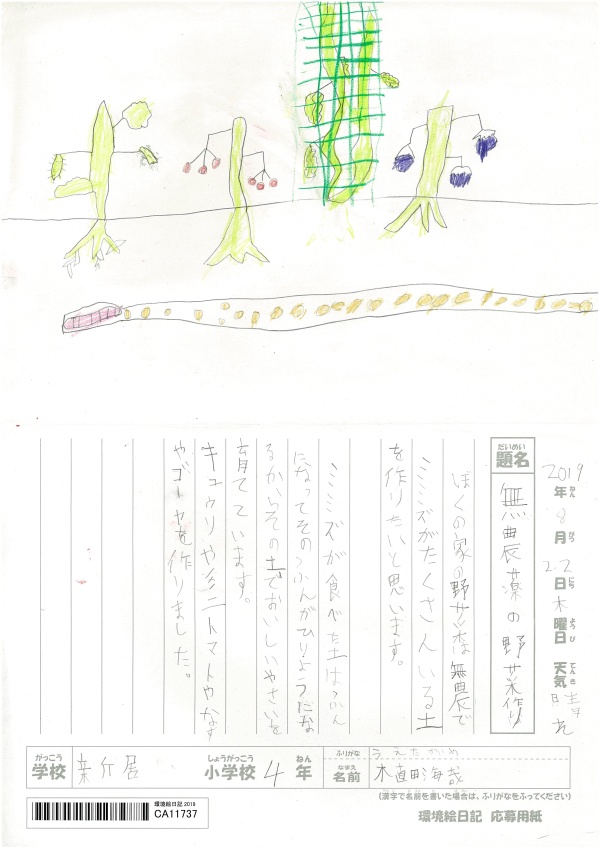 2019年ねん8月がつ22日にち木曜日ようび 天気てんき 晴れ
だいめい
題名 無農薬の野菜作り
ぼくの家の野サイは無農で
ミミズがたくさんいる土
を作りたいと思います。
ミミズが食べた土はふん
になってそのふんがひりょうにな
るからその土でおいしいやさいを
育てています。
キュウリやミニトマトやなす
やゴーヤを作りました。
がっこう しょうがっこう ねん
学校 新居 小学校 4年
ふりがな うえた
なまえ
名前 植田海哉
(漢字で名前を書いた場合は、ふりがなをふってください)
環境絵日記 2019
CA11737
環境絵日記 応募用紙